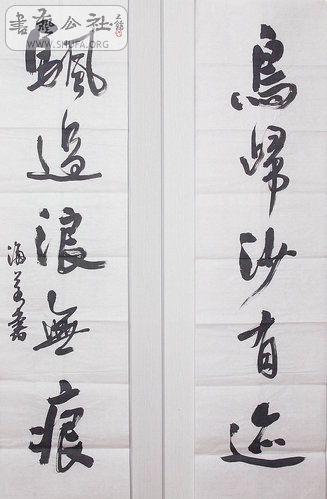 書藝公社
WWW.SHUFA.ORG
鳥歸沙有迹
颿過浪無痕
海 書